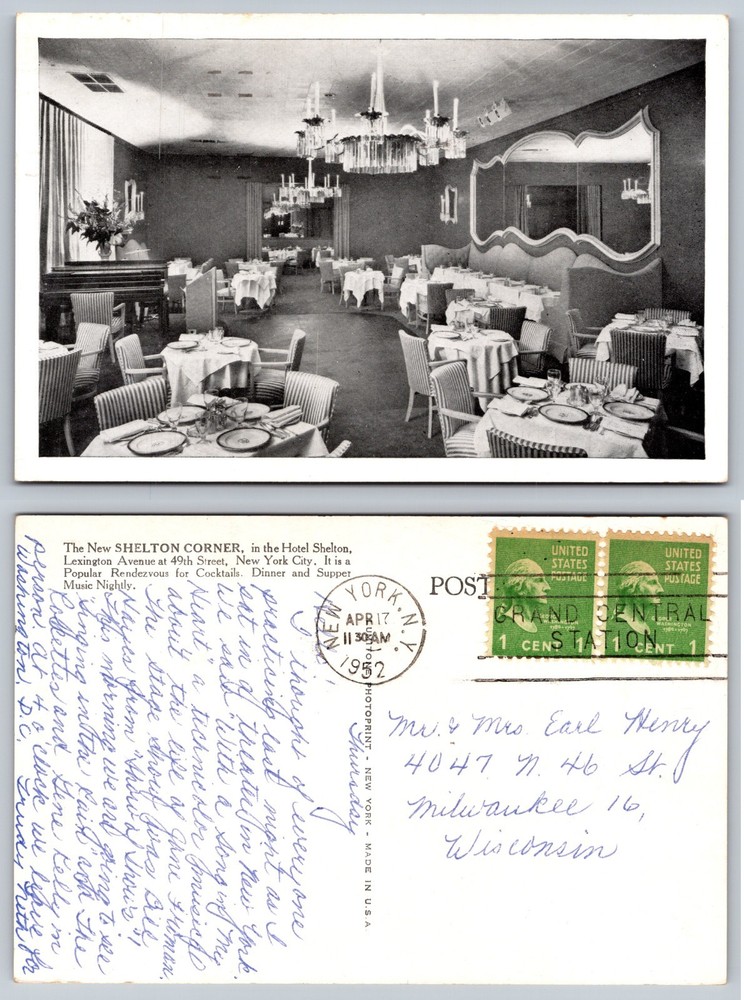 The New SHELTON CORNER, in the Hotel Shelton,
Lexington Avenue at 49th Street, New York City. It is a
Popular Rendezvous for Cocktails. Dinner and Supper
Music Nightly.
POST
NEW YORK, N.Y.
APR 17
11 30 AM
1952
GRAND CENTRAL
STATION
UNITED
STATES
POSTAGE
WASHINGTON
1 CENT 1
UNITED
STATES
POSTAGE
WASHINGTON
1 CENT 1
PHOTOPRINT - NEW YORK - MADE IN U.S.A.
Mr. & Mrs. Earl Henry
4047 N. 46 St.
Milwaukee 16,
Wisconsin
Thursday
I thought of everyone
practicing last night as I
sat in a theater in New York.
We saw "With a Song in My
Heart" a technicolor musical
about the life of Jane Froman.
The stage show was
Stars from
This morning we are going to see
"Singing in the Rain" with The
Rockettes and Gene Kelly in
person. At 4 o'clock we leave for
Washington, D.C.